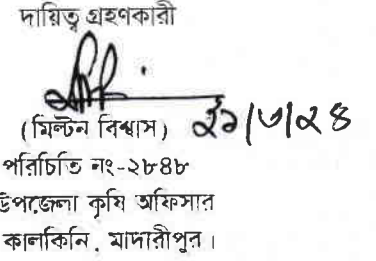 দায়িত্ব গ্রহণকারী
(মিল্টন বিশ্বাস) ২১/৩/২৪
পরিচিতি নং-২৮৪৮
উপজেলা কৃষি অফিসার
কালকিনি, মাদারীপুর।